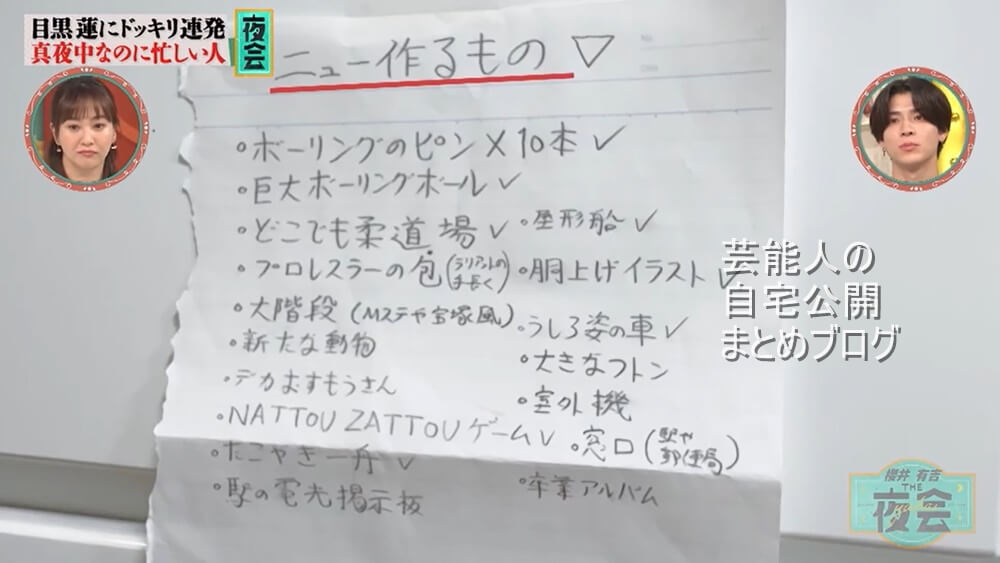 目黒蓮にドッキリ連発
真夜中なのに忙しい人
夜会
ニュー作るもの ▽
・ボーリングのピン×10本 ✓
・巨大ボーリングボール ✓
・どこでも柔道場 ✓
・屋形船 ✓
・プロレスラーの包(ラリアントの手長く)
・胴上げイラスト ✓
・大階段(Mステや宝塚風)
・うしろ姿の車 ✓
・新たな動物
・大きなフトン
・デカおすもうさん
・室外機
・NATTOU ZATTOUゲーム ✓
・窓口(駅や郵便局)
・たこやき一舟 ✓
・駅の電光掲示板
・卒業アルバム
芸能人の
自宅公開
まとめブログ
櫻井 有吉
THE
夜会